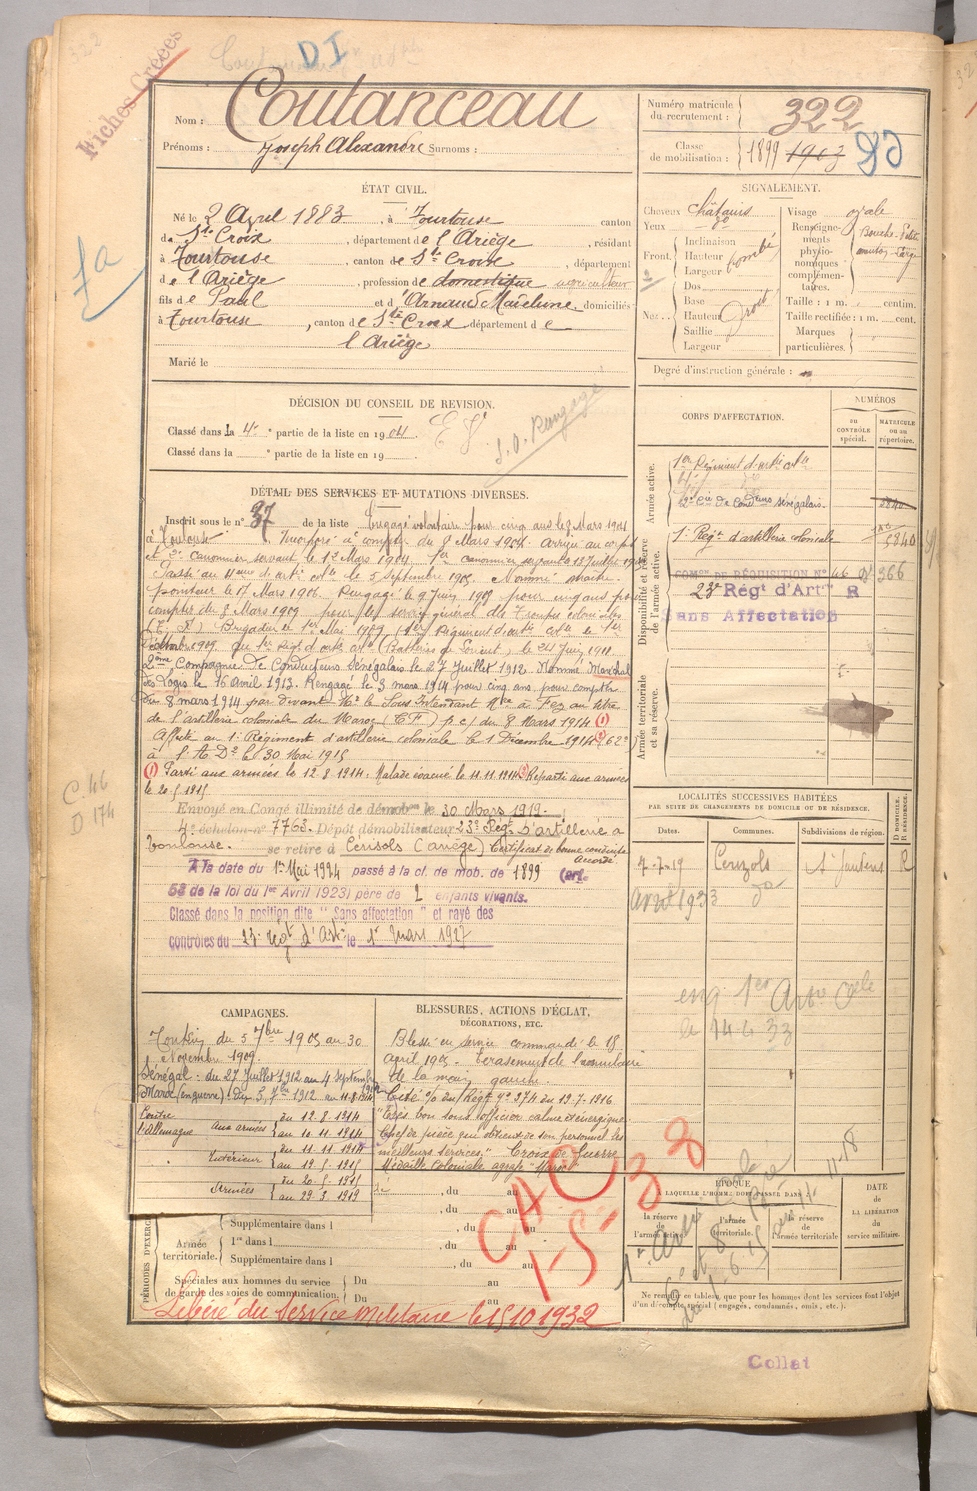 Fiches Créées
DI
Nom : Coutanceau
Prénoms : Joseph Alexandre Surnoms :
Numéro matricule du recrutement : 322
Classe de mobilisation : 1899 1903
ÉTAT CIVIL.
Né le 2 Avril 1883, à Tourtouse canton
de Ste Croix, département de l'Ariège, résidant
à Tourtouse, canton de Ste Croix, département
de l'Ariège, profession de domestique agriculteur
fils de Paul et d'Arnaud Madeleine domiciliés
à Tourtouse, canton de Ste Croix département de
l'Ariège
Marié le
SIGNALEMENT.
Cheveux châtains
Yeux do
Front Inclinaison
Hauteur
Largeur
bombé
Nez Dos
Base
Hauteur
Saillie
Largeur
droit
Visage ovale
Renseignements physionomiques complémentaires. Bouche Petite menton Large
Taille : 1 m. centim.
Taille rectifiée : 1 m. cent.
Marques particulières.
Degré d'instruction générale :
DÉCISION DU CONSEIL DE REVISION.
Classé dans la 4e partie de la liste en 1904
Classé dans la e partie de la liste en 19
Engagé
DÉTAIL DES SERVICES ET MUTATIONS DIVERSES.
Inscrit sous le n° 37 de la liste Engagé volontaire pour cinq ans le 8 Mars 1904
à Toulouse. Incorporé à compter du 8 Mars 1904. Arrivé au corps
et 2e canonnier servant le 12 Mars 1904 1er canonnier servant
Passé au 4eme d'artie colle le 5 Septembre 1905. Nommé
pointeur le 17 Mars 1906. Rengagé le 9 Juin 1909 pour cinq ans pour
compter du 8 Mars 1909 pour le service général des Troupes coloniales
Brigadier le 1er Mai 1909 1er Régiment d'artie colle le 1er
1909 1er Régt d'artie (Batteries de Lorient) le 24 Juin 1911
2ème Compagnie de Conducteurs Sénégalais le 27 Juillet 1912 Nommé Maréchal
des Logis le 16 Avril 1913. Rengagé le 3 mars 1914 pour cinq ans, pour compter
du 8 mars 1914 par devant Mr le Sous Intendant à Fez au titre
de l'artillerie coloniale du Maroc p. c/ du 8 Mars 1914 (1)
Affecté au 1er Régiment d'artillerie coloniale le 1 Décembre 1914 (2)
le 30 Mai 1915
(1) Parti aux armées le 12.8.1914. Malade évacué le 11.11.1914 (2) Reparti aux armées
le 20.5.1915
Envoyé en Congé illimité de démob. le 30 Mars 1919.
4e échelon n° 7763. Dépôt démobilisateur 23e Régt d'artillerie à
Toulouse. se retire à Cérisols (Ariège) Certificat de bonne conduite
Accordé
A la date du 1er Mai 1924 passé à la cl. de mob. de 1899 (art.
58 de la loi du 1er Avril 1923) père de 2 enfants vivants.
Classé dans la position dite "Sans affectation" et rayé des
contrôles du 23e régt d'Artie le 1er Mars 1927
C. 46
D 174
CORPS D'AFFECTATION.
NUMÉROS
au CONTRÔLE spécial.
MATRICULE ou au répertoire.
Armée active.
1er Régiment d'artie colle
2e Cie de Condrs sénégalais
1er Régt d'artillerie coloniale 5840
Disponibilité et réserve de l'armée active.
COMon DE RÉQUISITION N° 46 366
23e Régt d'Artie R
Sans Affectation
Armée territoriale et sa réserve.
LOCALITÉS SUCCESSIVES HABITÉES
PAR SUITE DE CHANGEMENTS DE DOMICILE OU DE RÉSIDENCE.
Dates.
Communes.
Subdivisions de région.
D DOMICILE. R RÉSIDENCE.
7-7-19 Cerizols St Gaudens R
Avril 1933 do
eng. 1er Artie Cole
le 14 4 33
CAMPAGNES.
Tonkin du 5 7bre 1905 au 30
Novembre 1909.
Sénégal : du 27 Juillet 1912 au 4 septembre
Maroc (en guerre) : du 5 7bre 1912 au 11-8-1914
Contre l'Allemagne
Aux armées du 12.8.1914
au 10.11.1914
Intérieur du 11.11.1914
au 19.5.1915
Armées du 20.5.1915
au 29.3.1919
BLESSURES, ACTIONS D'ÉCLAT,
DÉCORATIONS, ETC.
Blessé en service commandé le 18
avril 1905. Ecrasement de l'annulaire
de la main gauche.
Cité o/ du Régt n° 374 du 19.7.1916
"Très bon sous officier calme et énergique
Chef de pièce qui obtient de son personnel les
meilleurs services." Croix de Guerre
Médaille coloniale agrafe "Maroc"
, du au
, du au
, du au
, du au
, du au
Du au
Du au
CAC
1-5-38
PÉRIODES D'EXERC
Supplémentaire dans l
Armée territoriale. 1re dans l
Supplémentaire dans l
Spéciales aux hommes du service de garde des voies de communication.
Libéré du Service Militaire le 15 10 1932
ÉPOQUE
À LAQUELLE L'HOMME DOIT PASSER DANS
la réserve de l'armée active.
l'armée territoriale.
la réserve de l'armée territoriale
DATE de LA LIBÉRATION du service militaire.
Ne remplir ce tableau que pour les hommes dont les services font l'objet
d'un décompte spécial (engagés, condamnés, omis, etc.).
Collat